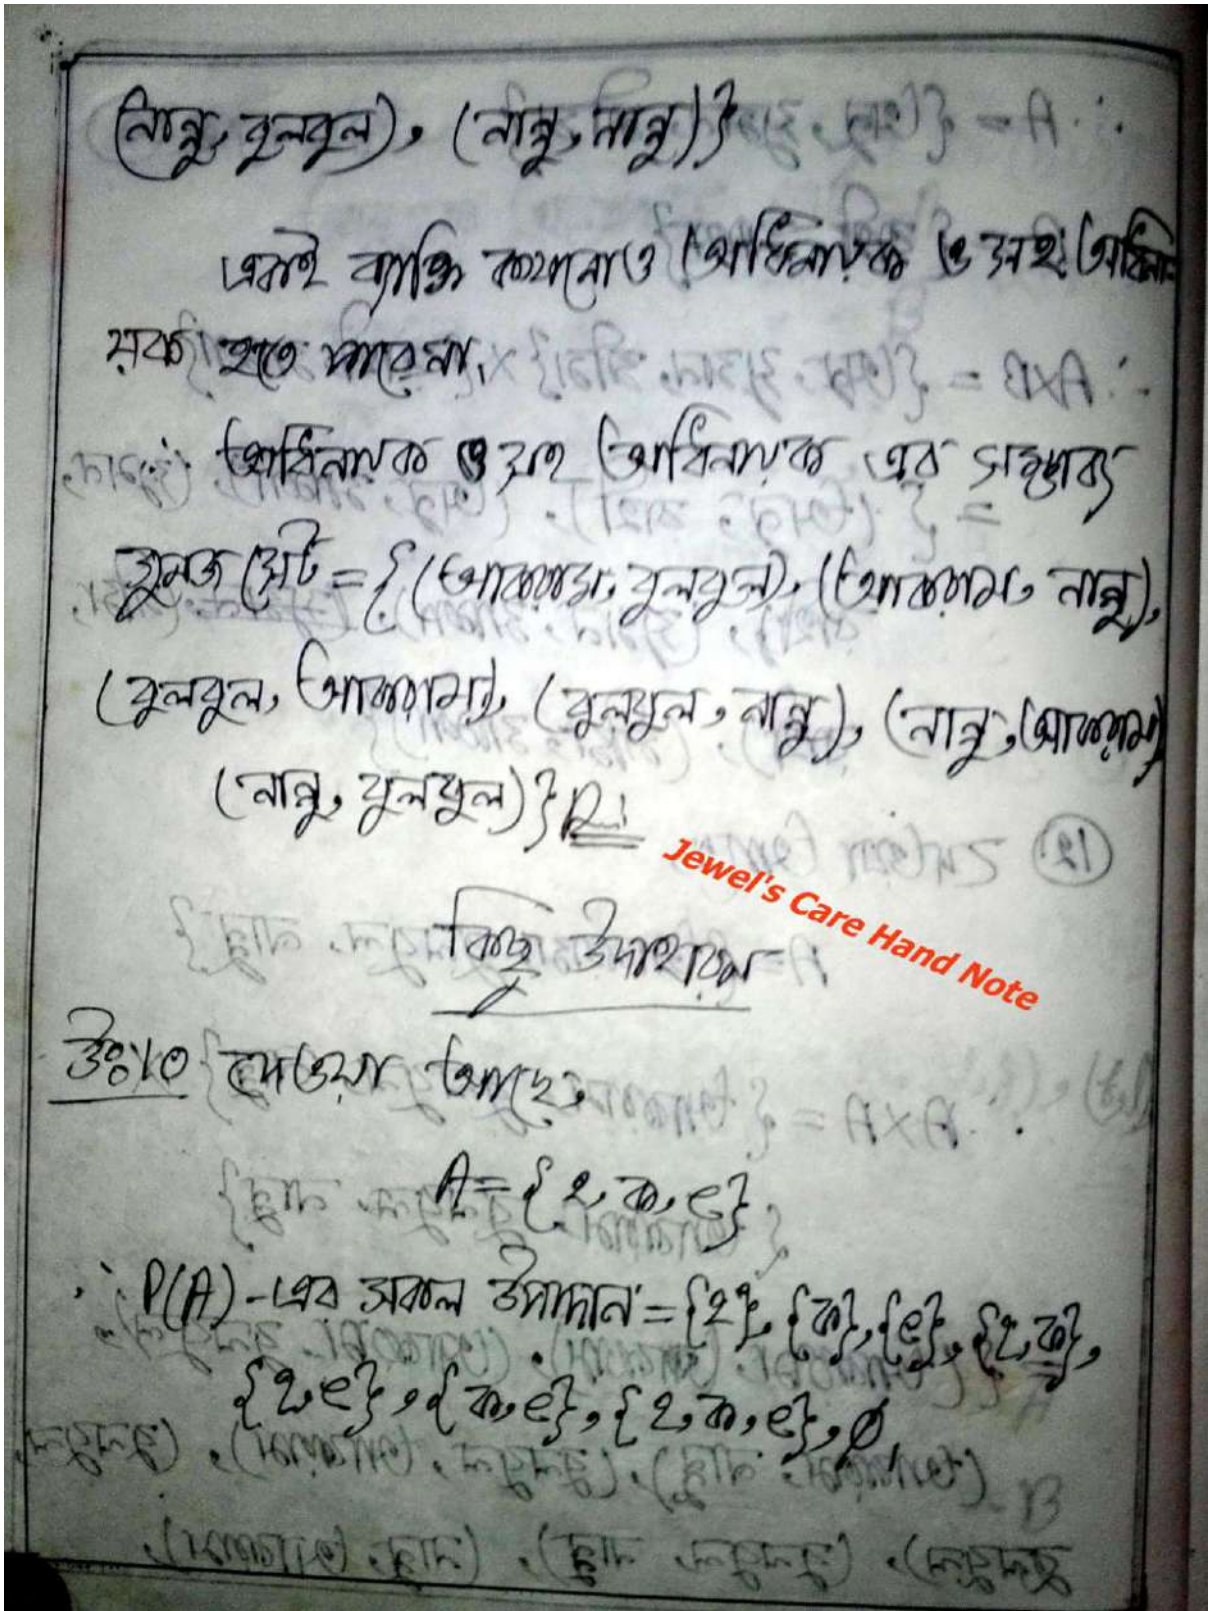 (নান্নু, বুলবুল), (নান্নু, নান্নু)}
একই ব্যক্তি কখনোও অধিনায়ক ও সহ অধিনা
য়ক হতে পারেনা,
∴ অধিনায়ক ও সহ অধিনায়ক এর সম্ভাব্য
সেট = {(আকরাম, বুলবুল), (আকরাম, নান্নু),
(বুলবুল, আকরাম), (বুলবুল, নান্নু), (নান্নু, আকরাম)
(নান্নু, বুলবুল)}
Jewel's Care Hand Note
কিছু উদাহরন
উঃ১০ দেওয়া আছে,
A = {২, ক, ৫}
∴ P(A) - এর সকল উপাদান = {২}, {ক}, {৫}, {২, ক},
{২, ৫}, {ক, ৫}, {২, ক, ৫}, ∅